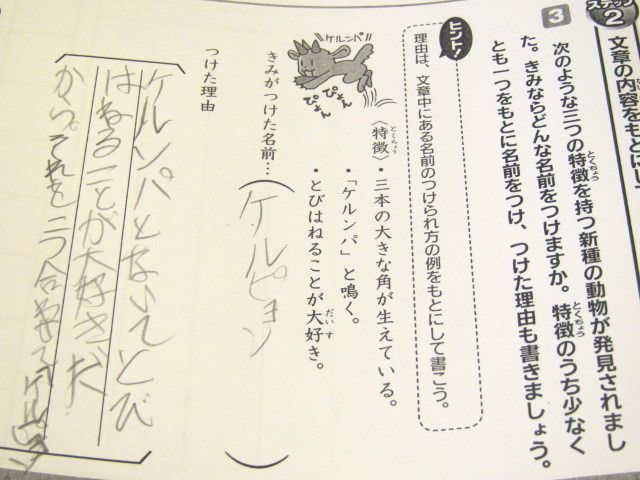 ステップ2
文章の内容をもとにし
3
次のような三つの特徴を持つ新種の動物が発見されまし
た。きみならどんな名前をつけますか。特徴のうち少なく
とも一つをもとに名前をつけ、つけた理由も書きましょう。
ヒント!
理由は、文章中にある名前のつけられ方の例をもとにして書こう。
ケルンパ
ぴょん
ぴょん
〈特徴〉・三本の大きな角が生えている。
・「ケルンパ」と鳴く。
・とびはねることが大好き。
きみがつけた名前…(ケルピョン)
つけた理由
ケルンパとないてとび
はねることが大好きだ
から。それを二つ合わ ケルピョン